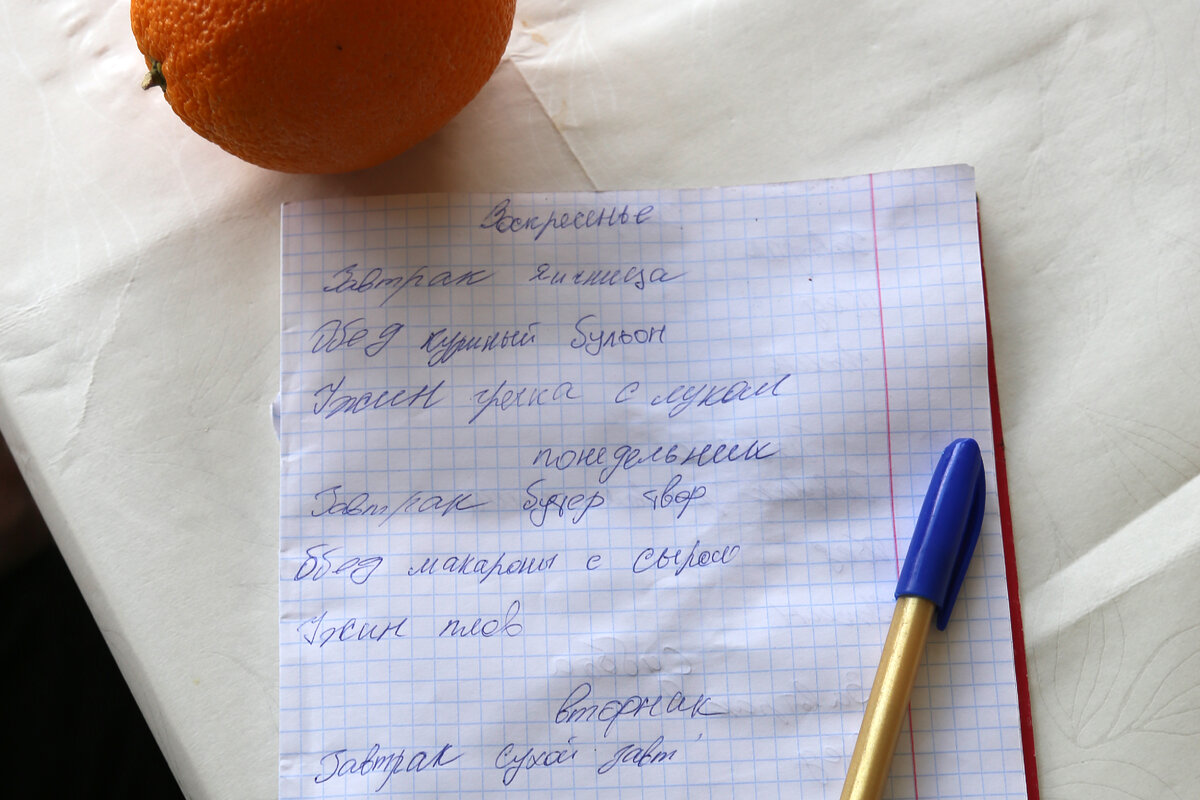 Воскресенье
Завтрак яичница
Обед куриный бульон
Ужин гречка с луком
понедельник
Завтрак бутер твор
Обед макароны с сыром
Ужин плов
вторник
Завтрак сухой завт